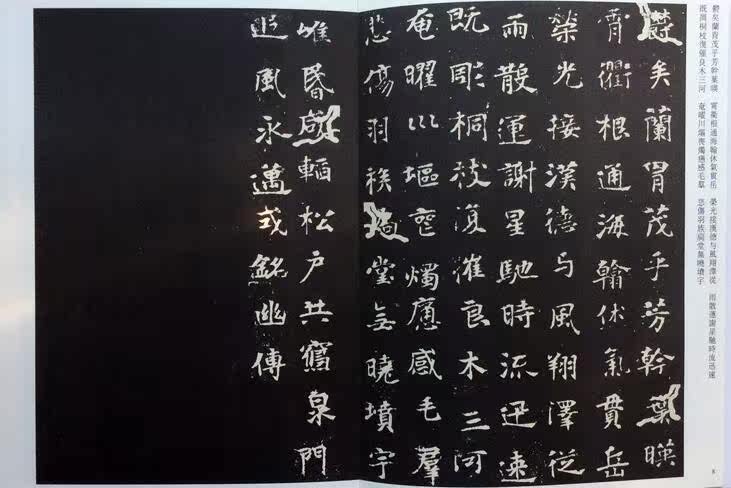 鬱矣蘭胄茂乎芳幹葉暎 霄衢根通海翰休氣貫岳 榮光接漢德与風翔澤從 雨散運謝星馳時流迅速
既彫桐枝復摧良木三河 奄曜川塸喪燭痛感毛羣 悲傷羽族扃堂無曉墳宇
鬱矣蘭胄茂乎芳幹葉暎
霄衢根通海翰休氣貫岳
榮光接漢德与風翔澤從
雨散運謝星馳時流迅速
既彫桐枝復摧良木三河
奄曜川塸喪燭痛感毛羣
悲傷羽族扃堂無曉墳宇
唯昏咸輼松户共寢泉門
追風永邁式銘幽傳
8